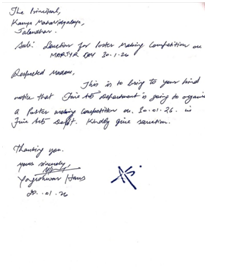 The Principal,
Kanya Mahavidyalaya,
Jalandhar.
Sub: Sanction for Poster Making Competition on
MARTYR DAY 30-1-26
Respected Madam,
This is to bring to your kind
note that Fine Arts department is going to organise
a Poster making competition on 30-01-26 in
Fine Arts Deptt. Kindly give sanction.
Thanking you.
Yours sincerely